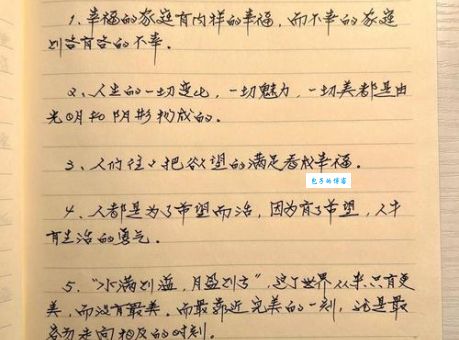 1、幸福的家庭有同样的幸福,而不幸的家庭
则各有各的不幸。
2、人生的一切变化,一切魅力,一切美都是由
光明和阴影构成的。
3、人们往々把欲望的满足看成幸福。
包子的博客
4、人都是为了希望而活,因为有了希望,人才
有生活的勇气。
5、“水满则溢,月盈则亏”,这个世界从来只有更
美,而没有最美。而最靠近完美的一刻,还是最
容易走向相反的时刻。